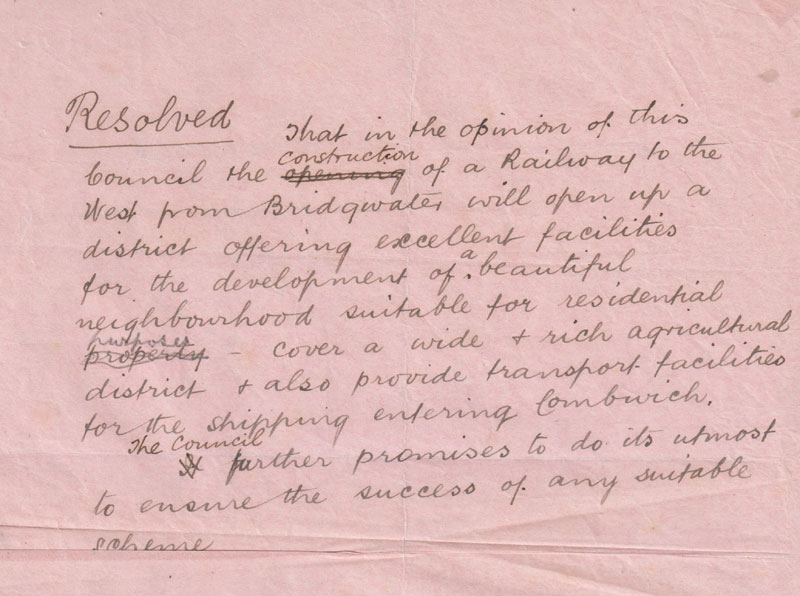 Resolved That in the opinion of this
construction
Council the opening of a Railway to the
West from Bridgwater will open up a
district offering excellent facilities
for the development of a beautiful
neighbourhood suitable for residential
purposes
property - cover a wide + rich agricultural
district + also provide transport facilities
for the shipping entering Combwich.
The Council
It further promises to do its utmost
to ensure the success of any suitable
scheme